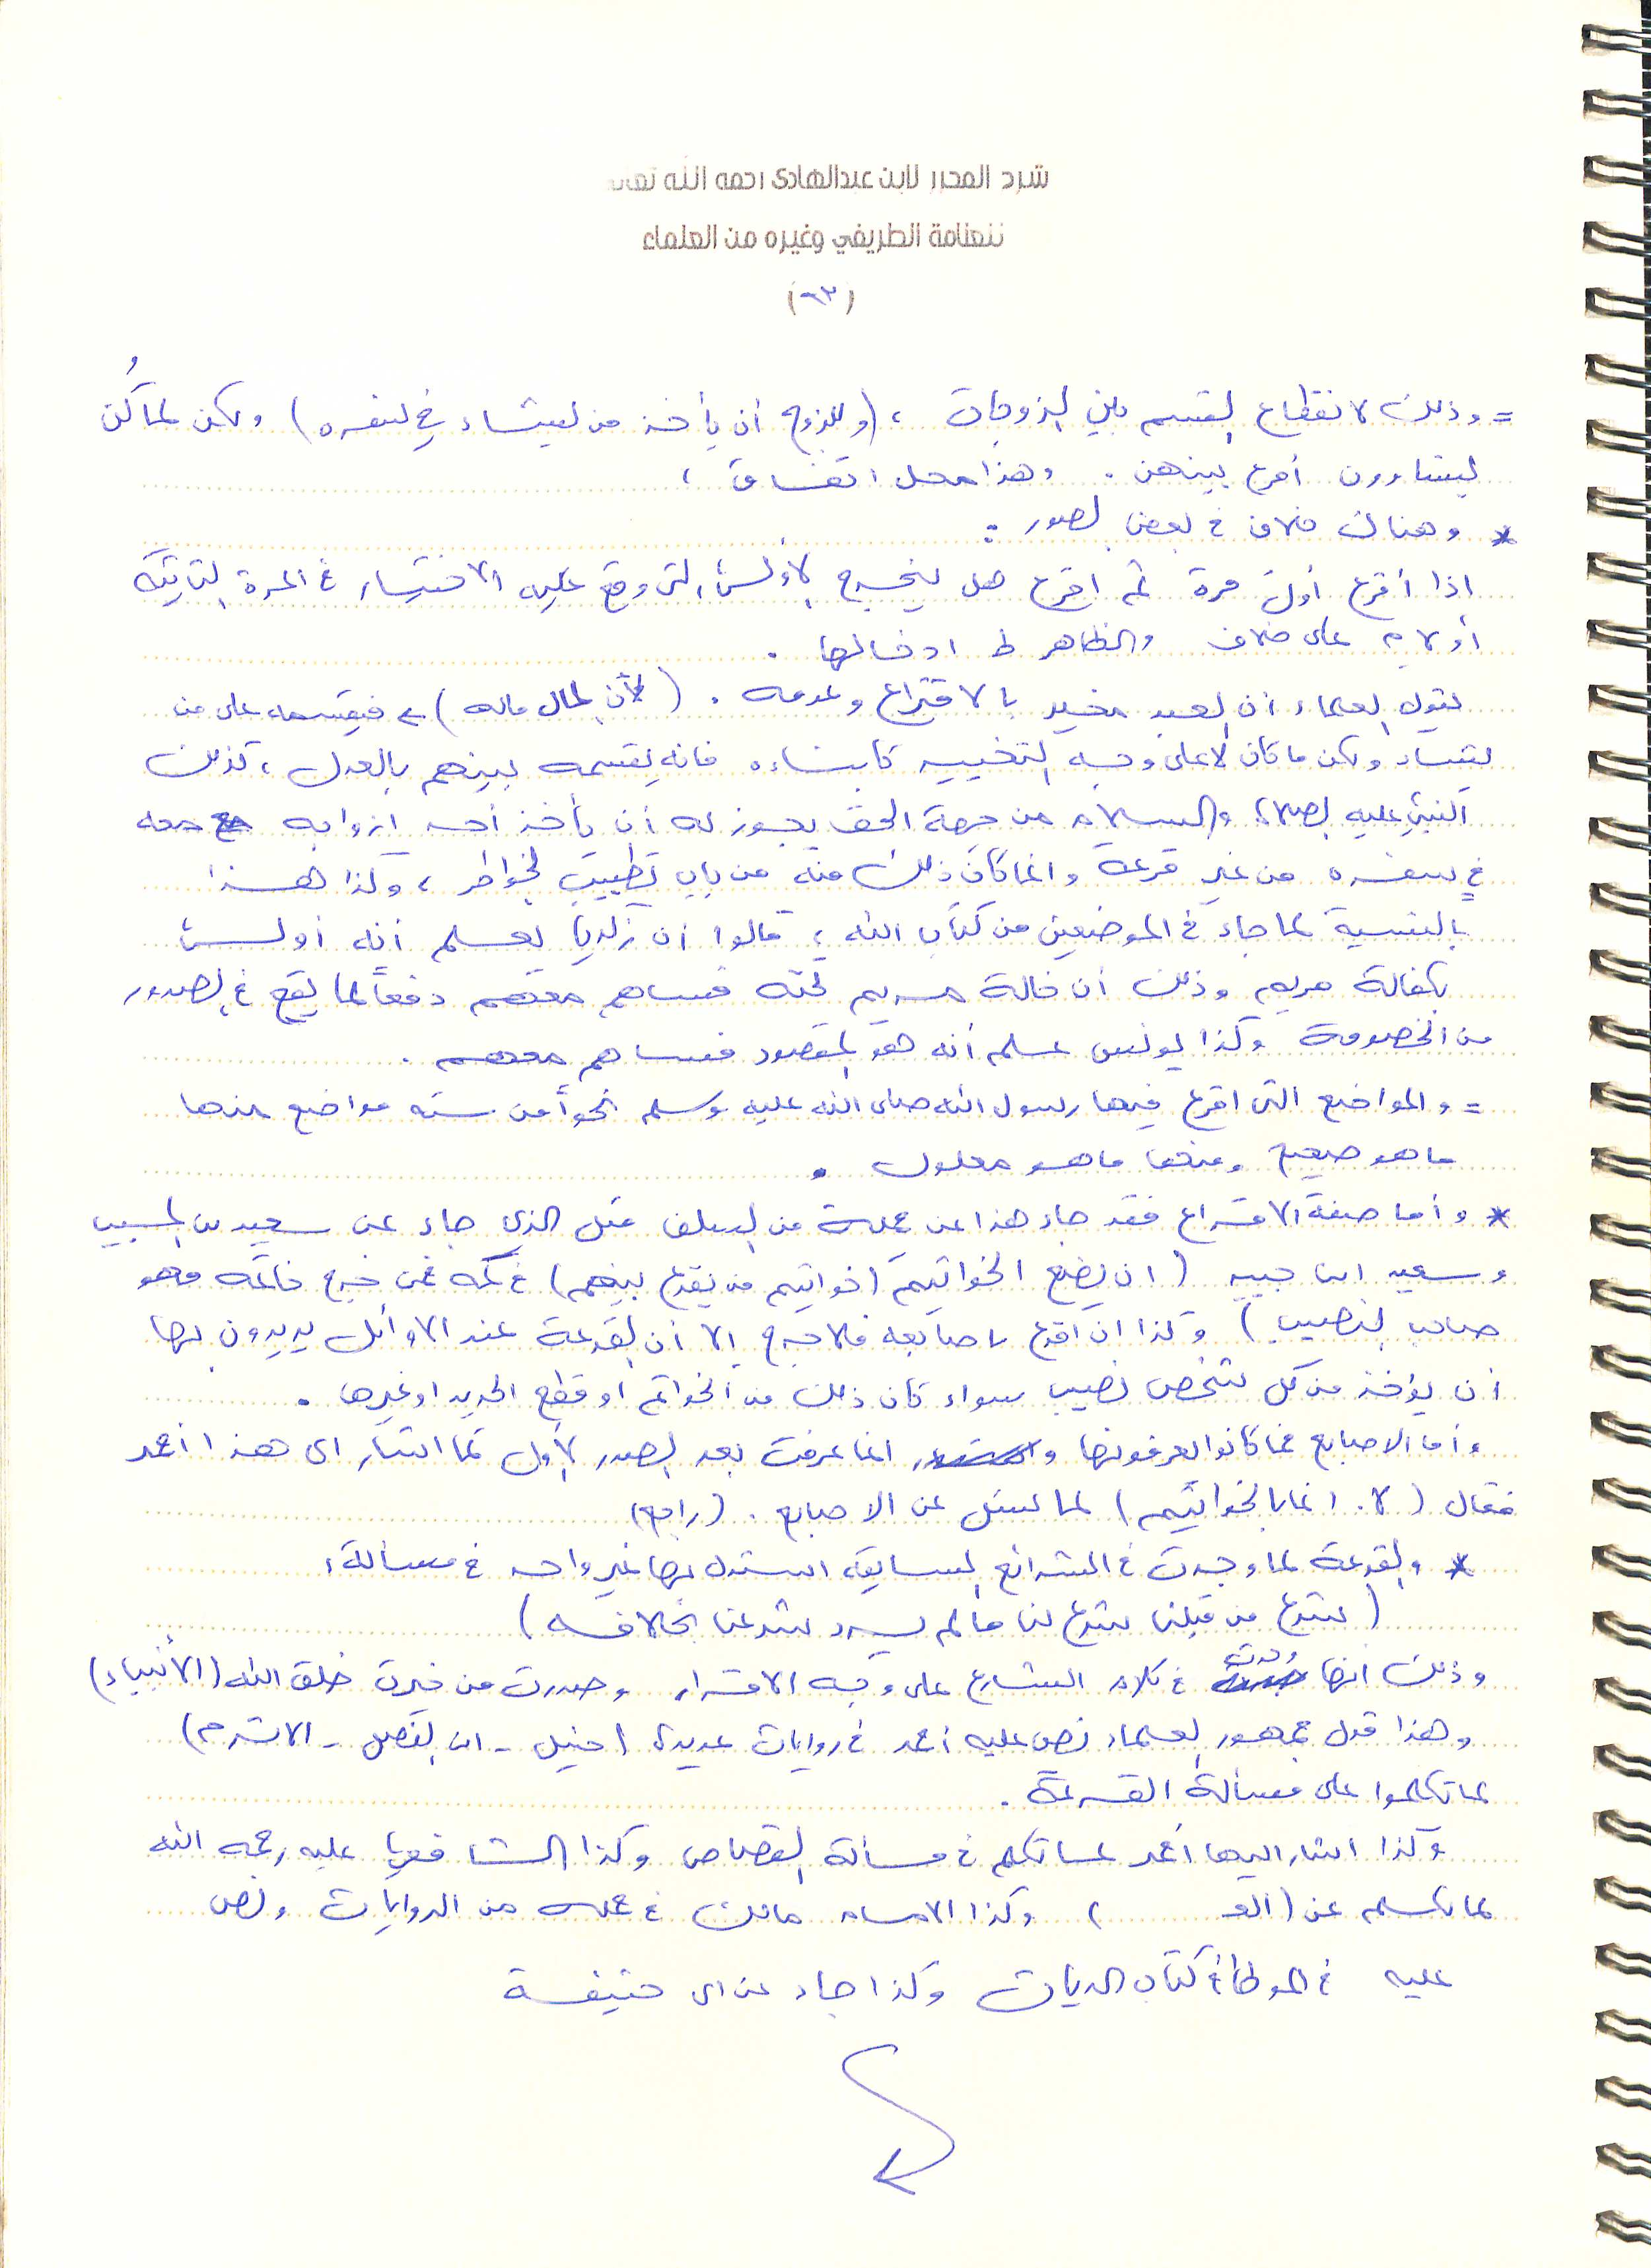 شرح المحرر لابن عبدالهادى رحمه الله تعالى
للعلامة الطريفي وغيره من العلماء
(٦٣)
= وذلك لانقطاع القسم بين الزوجات ، (وللزوج أن يأخذ من يشاء في سفره) ولكن لما كُن
يتشاورون أقرع بينهن . وهذا محل اتفاق ،
* وهناك خلاف في بعض الصور :
إذا أقرع أول مرة ثم اقرع هل يخرج الأولى التى وقع عليه الاختيار في المرة الثانية
أو لا ؟ على خلاف والظاهر ادخالها .
يقول العلماء أن العبد مخير بالاقتراع وعدمه . (لأن المال ماله) فيقسمه على من
يشاء ولكن ما كان لا على وجه التخيير كابناءه فانه يقسمه بينهم بالعدل ، كذلك
النبي عليه الصلاة والسلام من جهة الحق يجوز له أن يأخذ أحد ازواجه معه
في سفره من غير قرعة وانما كان ذلك منه من باب تطييب الخواطر ، وكذا هذا
بالنسبة لما جاء في الموضعين من كتاب الله ، قالوا ان زكريا يعلم أنه أولى
بكفالة مريم وذلك أن خالة مريم تحته فساهم معهم دفعاً لما يقع في الصدور
من الخصومة وكذا يونس علم أنه هو المقصود فساهم معهم .
= والمواضع التى اقرع فيها رسول الله صلى الله عليه وسلم نحواً من سته مواضع منها
ما هو صحيح ومنها ما هو معلول .
* وأما صفة الاقتراع فقد جاء هذا عن جملة من السلف مثل الذي جاء عن سعيد بن المسيب
وسعيد ابن جبير (ان يضع الخواتيم (خواتيم من يقرع بينهم) في كمه فمن خرج خاتمه فهو
صاحب النصيب) وكذا ان اقرع باصابعه فلا حرج إلا أن القرعة عند الاوائل يريدون بها
أن يؤخذ من كل شخص نصيب سواء كان ذلك من الخواتم او قطع الحديد او غيرها .
وأما الاصابع فما كانوا يعرفونها و انما عرفت بعد الصدر الأول كما اشار الى هذا أحمد
فقال (لا . انما بالخواتيم) لما سئل عن الاصابع . (راجع)
* والقرعة لما وجدت في الشرائع السابقة استدل بها غير واحد في مسألة :
(شرع من قبلنا شرع لنا ما لم يرد شرعنا بخلافه)
وذلك انها وردت في كلام الشارع على وجه الاقرار وصدرت من خيرت خلق الله (الأنبياء)
وهذا قول جمهور العلماء نص عليه أحمد في روايات عديدة (حنبل - ابن الفضل - الاثرم)
لما تكلموا على مسألة القرعة .
وكذا اشار اليها أحمد لما تكلم في مسألة القصاص وكذا الشافعي عليه رحمه الله
لما تكلم عن (الع ) وكذا الامام مالك في جملة من الروايات ونص
عليه في الموطأ في كتاب الديات وكذا جاء عن ابى حنيفة